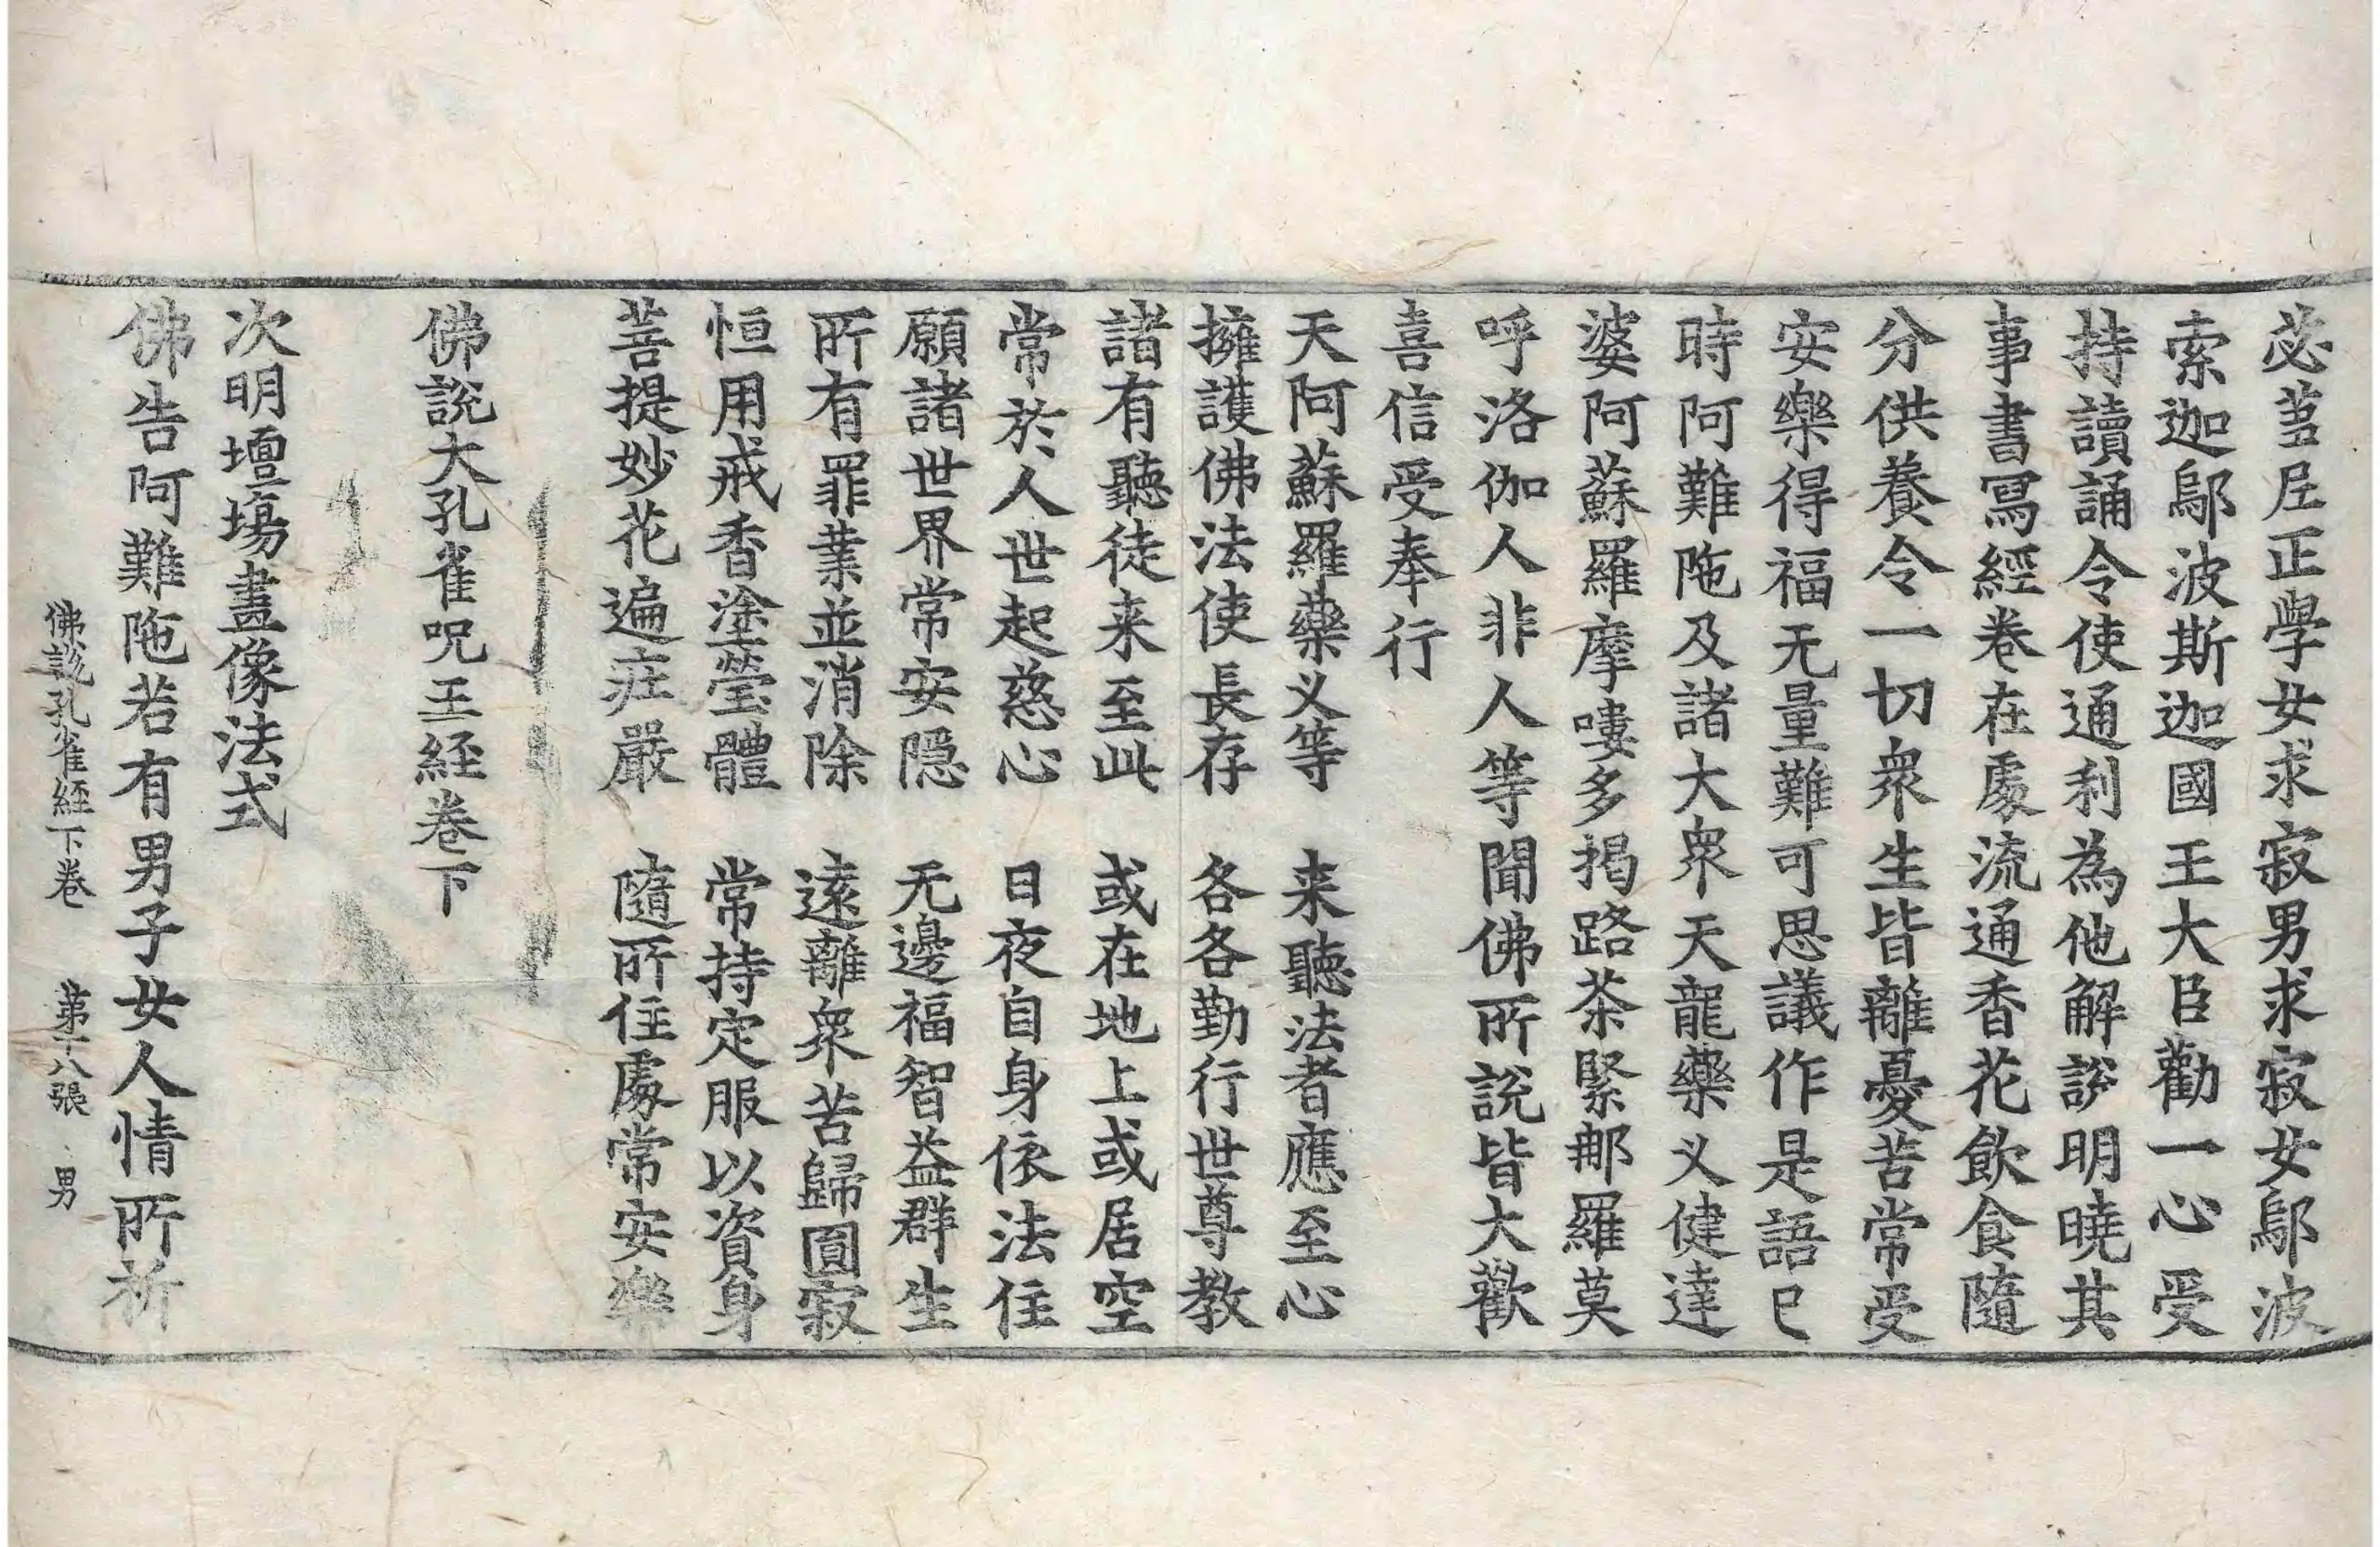 苾芻尼正學女求寂男求寂女鄔波
索迦鄔波斯迦國王大臣勸一心受
持讀誦令使通利為他解說明曉其
事書寫經卷在處流通香花飲食隨
分供養令一切衆生皆離憂苦常受
安樂得福无量難可思議作是語已
時阿難陁及諸大衆天龍藥义健達
婆阿蘇羅摩嘍多揭路茶緊那羅莫
呼洛伽人非人等聞佛所說皆大歡
喜信受奉行
天阿蘇羅藥义等　来聽法者應至心
擁護佛法使長存　各各勤行世尊教
諸有聽徒来至此　或在地上或居空
常於人世起慈心　日夜自身依法住
願諸世界常安隱　无邊福智益群生
所有罪業並消除　遠離衆苦歸圓寂
恒用戒香塗瑩體　常持定服以資身
菩提妙花遍莊嚴　隨所住處常安樂
佛說大孔雀呪王経卷下
次明壇場畫像法式
佛告阿難陁若有男子女人情所祈
佛說孔雀経下卷　第十八張　男